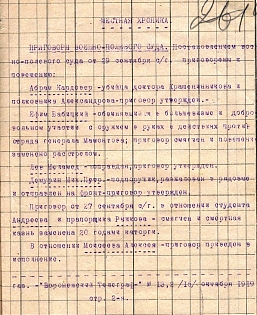 МЕСТНАЯ ХРОНИКА.
ПРИГОВОРЫ ВОЕННО-ПОЛЕВОГО СУДА. Постановлением вое
но-полевого суда от 29 сентября с/г. приговорены к
повешению:
Абрам -убийца доктора и
полковника Александрова-приговор утвержден.-
Ефим -обвиняется в большевизме и добро
вольном участии с оружием в руках в действиях против
отряда генерала Мамонтова; приговор смягчен и повешение
заменено расстрелом.
-оправдан, приговор утвержден.
разжалован в рядовые
и отправлен на фронт-приговор утвержден.
Приговор от 27 сентября с/г. в отношении студента
Андреева и прапорщика - смягчен и смертная
казнь заменена 20 годами каторги.
В отношении Моисеева Алексея -приговор приведен в
исполнение.
газ. "Воронежский Телеграф" октября 1919
стр. 2-я.